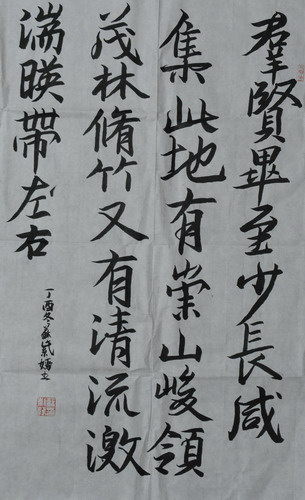 羣賢畢至少長咸
集此地有崇山峻領
茂林脩竹又有清流激
湍暎帶左右
丁酉冬